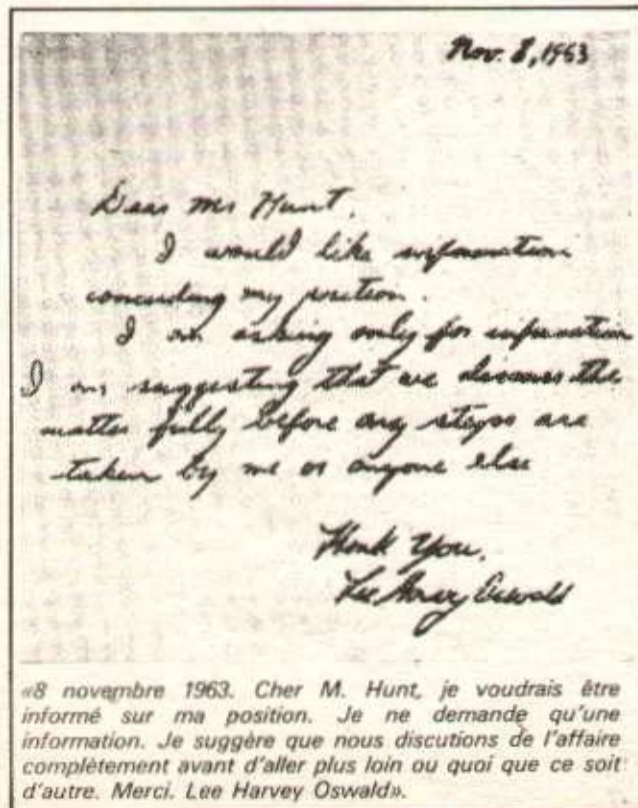 Nov. 8, 1963
Dear Mr Hunt,
I would like information
concerding my position.
I am asking only for information
I am suggesting that we discuss the
matter fully before any steps are
taken by me or anyone else
Thank You,
Lee Harvey Oswald
«8 novembre 1963. Cher M. Hunt, je voudrais être
informé sur ma position. Je ne demande qu'une
information. Je suggère que nous discutions de l'affaire
complètement avant d'aller plus loin ou quoi que ce soit
d'autre. Merci. Lee Harvey Oswald».